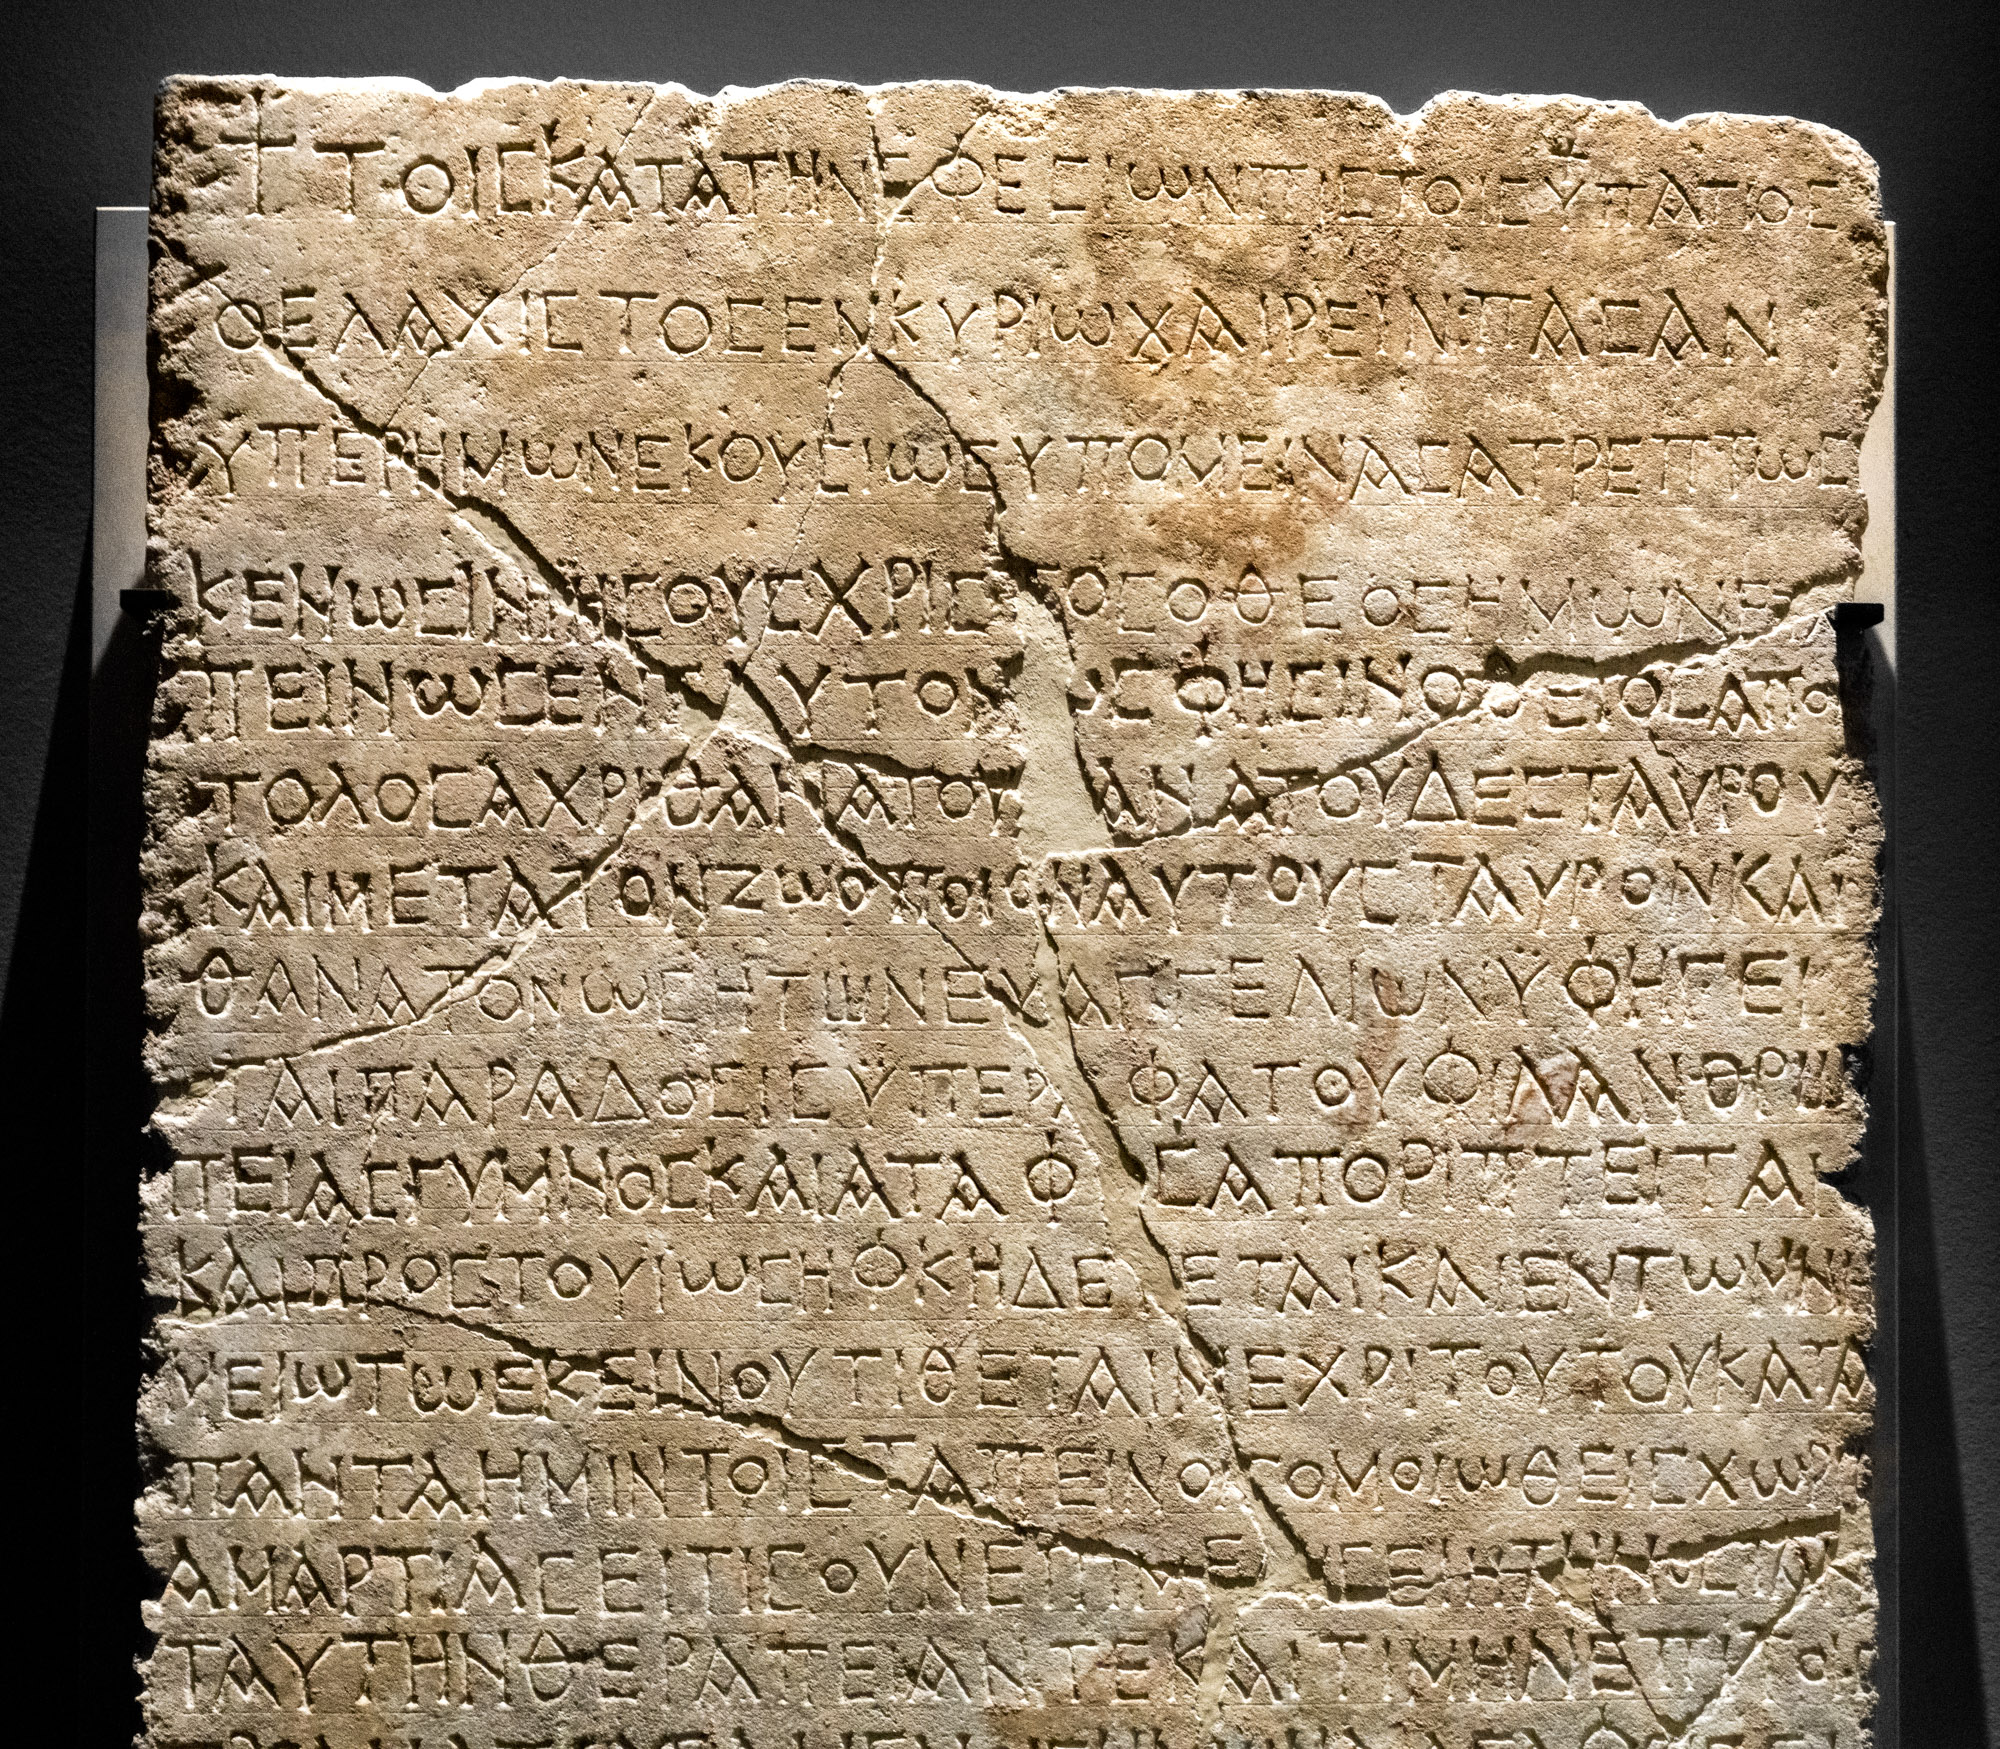 † ΤΟΙΣ ΚΑΤΑ ΤΗΝ ΕΦΕΣΙΩΝ ΠΙΣΤΟΙΣ ΥΠΑΤΙΟΣ
Ο ΕΛΑΧΙΣΤΟΣ ΕΝ ΚΥΡΙΩ ΧΑΙΡΕΙΝ ΠΑΣΑΝ
ΥΠΕΡ ΗΜΩΝ ΕΚΟΥΣΙΩΣ ΥΠΟΜΕΙΝΑΣ ΑΤΡΕΠΤΩΣ
ΚΕΝΩΣΙΝ ΙΗΣΟΥΣ ΧΡΙΣΤΟΣ Ο ΘΕΟΣ ΗΜΩΝ Ε
ΠΕΙΝΩΣΕΝ ΑΥΤΟΝ ΩΣ ΦΗΣΙΝ Ο ΘΕΙΟΣ ΑΠΟ
ΤΟΛΟΣ ΑΧΡΙ ΘΑΝΑΤΟΥ ΘΑΝΑΤΟΥ ΔΕ ΣΤΑΥΡΟΥ
ΚΑΙ ΜΕΤΑ ΤΟΝ ΖΩΟΠΟΙΟΝ ΑΥΤΟΥ ΣΤΑΥΡΟΝ ΚΑΙ
ΘΑΝΑΤΟΝ ΩΣ Η ΤΩΝ ΕΥΑΓΓΕΛΙΩΝ ΥΦΗΓΕΙ
ΤΑΙ ΠΑΡΑΔΟΣΙΣ ΥΠΕΡ ΑΦΑΤΟΥ ΦΙΛΑΝΘΡΩ
ΠΕΙΑΣ ΓΥΜΝΟΣ ΚΑΙ ΑΤΑΦΟΣ ΑΠΟΡΙΠΤΕΙΤΑΙ
ΚΑΙ ΠΡΟΣ ΤΟΥ ΙΩΣΗΦ ΚΗΔΕΥΕΤΑΙ ΚΑΙ ΕΝ ΤΩ ΜΝΗ
ΜΕΙΩ ΤΩ ΕΚΕΙΝΟΥ ΤΙΘΕΤΑΙ ΜΕΧΡΙ ΤΟΥΤΟΥ ΚΑΤΑ
ΠΑΝΤΑ ΗΜΙΝ ΤΟΙΣ ΤΑΠΕΙΝΟΙΣ ΟΜΟΙΩΘΕΙΣ ΧΩΡΙΣ
ΑΜΑΡΤΙΑΣ ΕΙ ΤΙΣ ΟΥΝ
ΤΑΥΤΗΝ ΘΕΡΑΠΕΙΑΝ ΤΕ ΚΑΙ ΤΙΜΗΝ ΕΠΙ ΤΟΙΣ